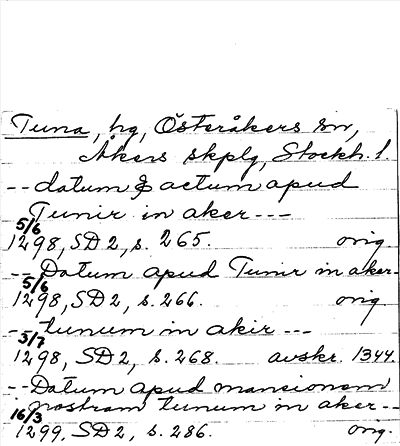 Tuna, hg, Österåkers sn,
Åkers skplg, Stockh. l.
-- datum & actum apud
Tunir in aker ---
5/6
1298, SD 2, s. 265. orig
-- Datum apud Tunir in aker-
5/6
1298, SD 2, s. 266. orig
-- tunum in akir ---
5/7
1298, SD 2, s. 268. avskr. 1344.
-- Datum apud mansionem
nostram tunum in aker --
16/3
1299, SD 2, s. 286. orig.